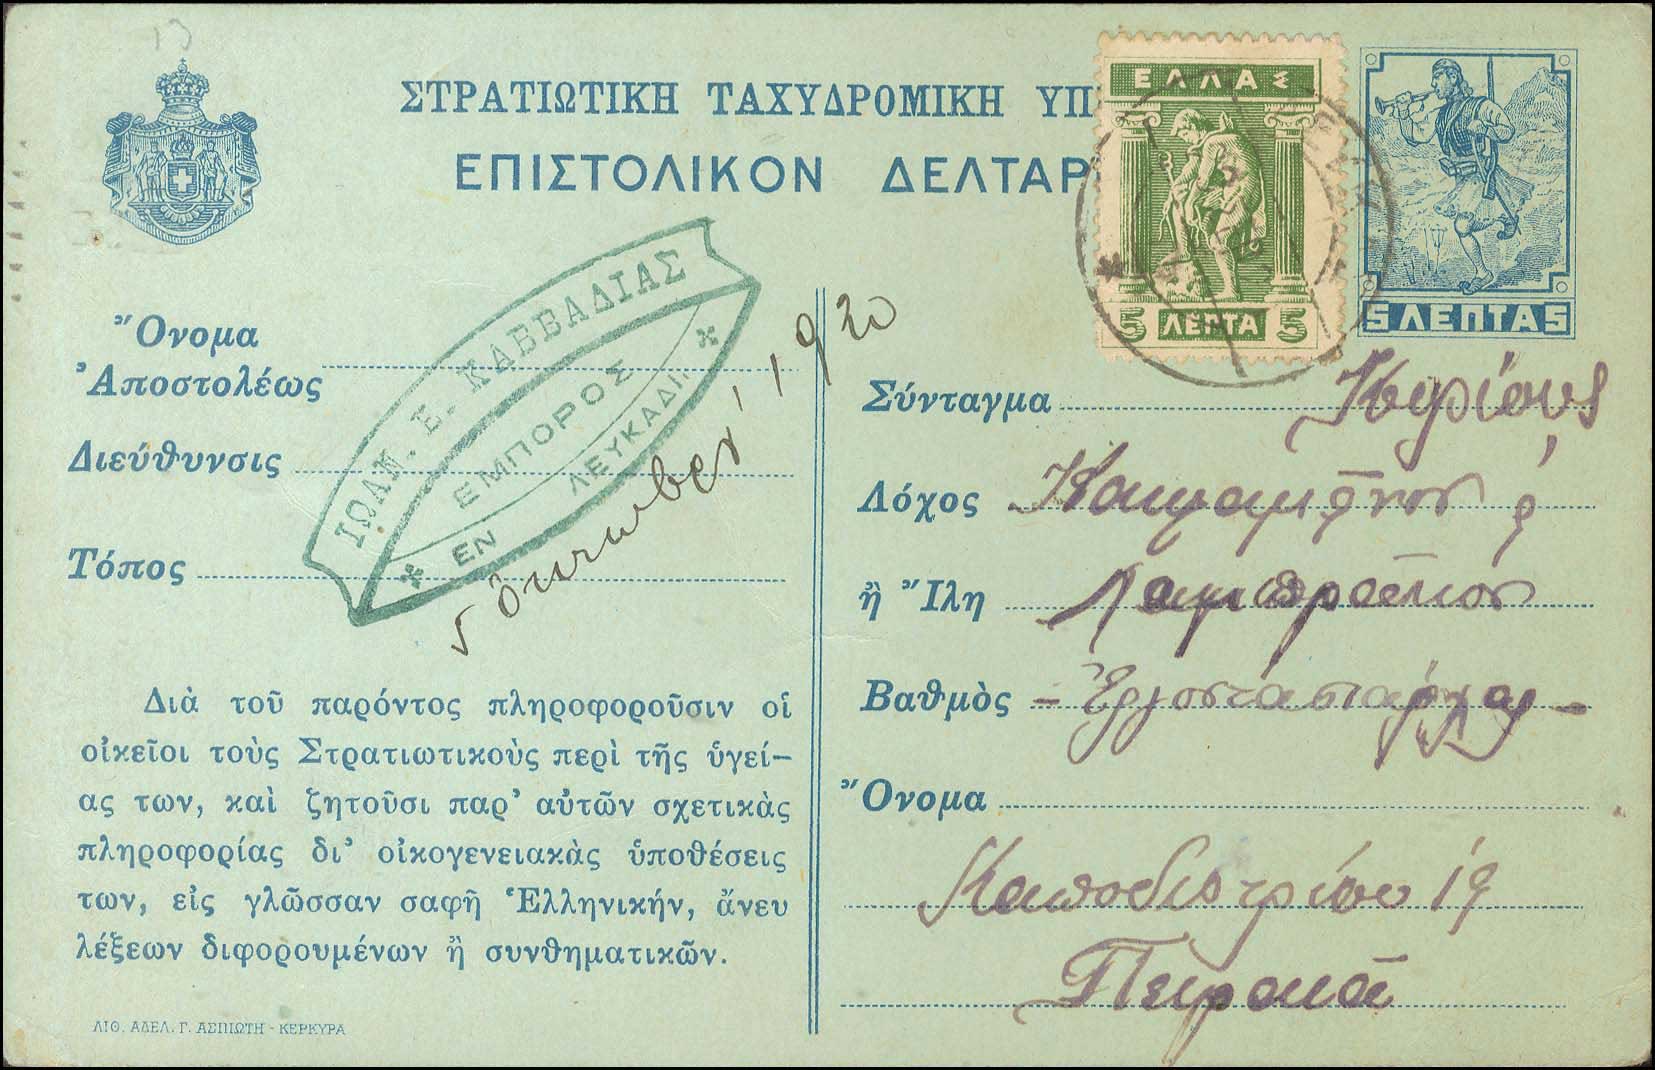 ΣΤΡΑΤΙΩΤΙΚΗ ΤΑΧΥΔΡΟΜΙΚΗ ΥΠ
ΕΠΙΣΤΟΛΙΚΟΝ ΔΕΛΤΑΡ
ΕΛΛΑΣ
5 ΛΕΠΤΑ 5
5 ΛΕΠΤΑ 5
Ὄνομα
Ἀποστολέως
Διεύθυνσις
Τόπος
ΙΩΑΝ. Ε. ΚΑΒΒΑΔΙΑΣ
ΕΜΠΟΡΟΣ
ΕΝ ΛΕΥΚΑΔΙ
5 Ὀκτωβρ 1920
Διὰ τοῦ παρόντος πληροφοροῦσιν οἱ
οἰκεῖοι τοὺς Στρατιωτικοὺς περὶ τῆς ὑγεί-
ας των, καὶ ζητοῦσι παρ' αὐτῶν σχετικὰς
πληροφορίας δι' οἰκογενειακὰς ὑποθέσεις
των, εἰς γλῶσσαν σαφῆ Ἑλληνικήν, ἄνευ
λέξεων διφορουμένων ἢ συνθηματικῶν.
ΛΙΘ. ΑΔΕΛ. Γ. ΑΣΠΙΩΤΗ - ΚΕΡΚΥΡΑ
Σύνταγμα Κυρίους
Λόχος
ἢ Ἴλη
Βαθμὸς - Ἐργοστασιάρχας -
Ὄνομα
Καποδιστρίου 19
Πειραιᾶ